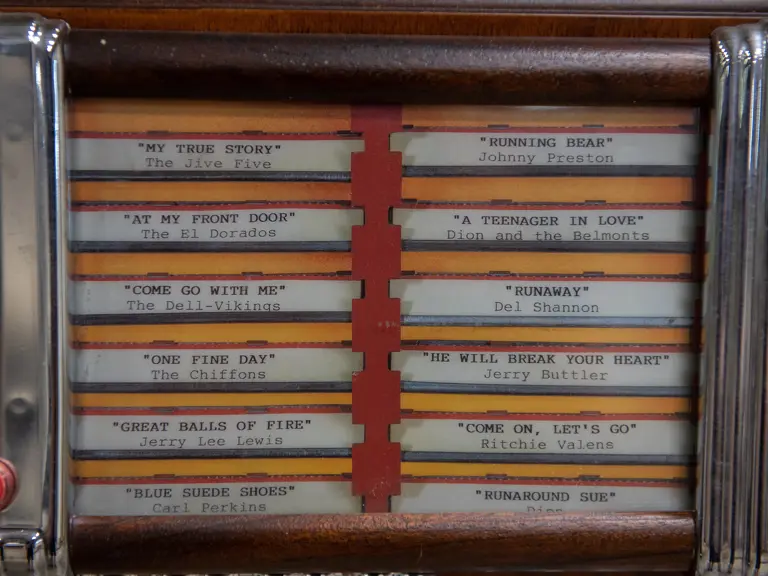 "MY TRUE STORY"
The Jive Five
"AT MY FRONT DOOR"
The El Dorados
"COME GO WITH ME"
The Dell-Vikings
"ONE FINE DAY"
The Chiffons
"GREAT BALLS OF FIRE"
Jerry Lee Lewis
"BLUE SUEDE SHOES"
Carl Perkins
"RUNNING BEAR"
Johnny Preston
"A TEENAGER IN LOVE"
Dion and the Belmonts
"RUNAWAY"
Del Shannon
"HE WILL BREAK YOUR HEART"
Jerry Buttler
"COME ON, LET'S GO"
Ritchie Valens
"RUNAROUND SUE"
Dion